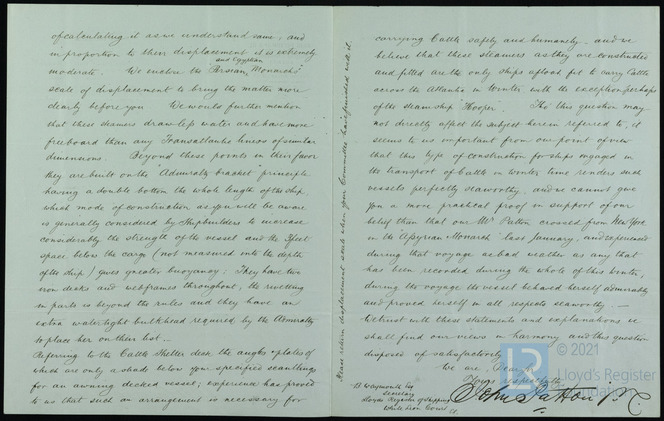 of calculating it as we understand same, and
in proportion to their displacement it is extremely
moderate. We enclose the Persian and Egyptian Monarchs
scale of displacement to bring the matter more
clearly before you We would further mention
that these steamers draw less water and have more
freeboard than any Transatlantic liners of similar
dimensions. Beyond these points in their favor
they are built on the "Admiralty bracket" principle
having a double bottom the whole length of the ship,
which mode of construction as you will be aware
is generally considered by Shipbuilders to increase
considerably the strength of the vessel and the 4 feet
space below the cargo (not measured into the depth
of the ship) gives greater buoyancy: They have two
iron decks and webframes throughout, the rivetting
in parts is beyond the rules and they have an
extra watertight bulkhead required by the Admiralty
to place her on their list...
Referring to the Cattle Shelter deck the angles & plates of
which are only a shade below your specified scantlings
for an awning decked vessel; experience has proved
to us that such an arrangement is necessary for
Please return displacement scale when your Committee has finished with it.
carrying Cattle safely and humanely and we
believe that these steamers as they are constructed
and fitted are the only ships afloat fit to carry Cattle
across the Atlantic in Winter with the exception perhaps
of the steam ship "Hooper". Tho' this question may
not directly affect the subject herein referred to, it
seems to us important from our point of view
that this type of construction for ships engaged in
the transport of Cattle in Winter time renders such
vessels perfectly seaworthy, and we cannot give
you a more practical proof in support of our
belief than that our Mr Patton crossed from New York
in the "Assyrian Monarch" last January, and experienced
during that voyage as bad weather as any that
has been recorded during the whole of this Winter,
during the voyage the vessel behaved herself admirably
and proved herself in all respects seaworthy. —
We trust with these statements and explanations we
shall find our views in harmony and this question
disposed of satisfactorily
We are, Dear Sir
Yours respectfully
John Patton Jr.
B. Waymouth Esq
Secretary
Lloyds Register of Shipping
White Lion Court
© 2021
LR
Lloyd's Register
Foundation